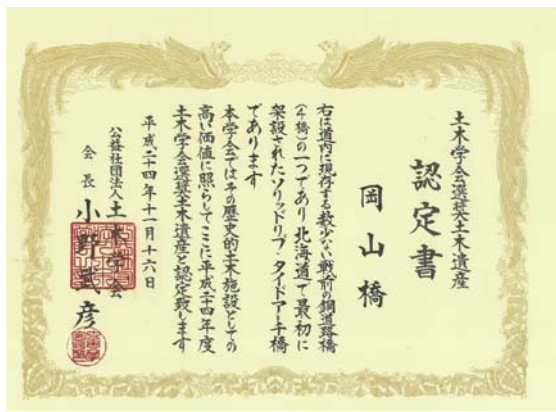 土木学会選奨土木遺産
認定書
岡山橋
右は道内に現存する数少ない戦前の鋼道路橋
(4橋)の一つであり北海道で最初に
架設されたソリッドリブ・タイドアーチ橋
であります
本学会ではその歴史的土木施設としての
高い価値に照らしてここに平成二十四年度
土木学会選奨土木遺産と認定致します
平成二十四年十一月十六日
公益社団法人土木学会
会長 小野武彦